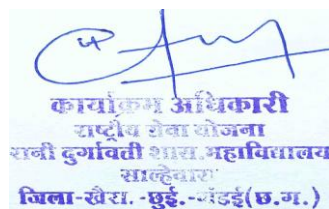 कार्यक्रम अधिकारी
राष्ट्रीय सेवा योजना
रानी दुर्गावती शास. महाविद्यालय
साल्हेवारा
जिला-खैरा. -छुई. -गंडई (छ.ग.)